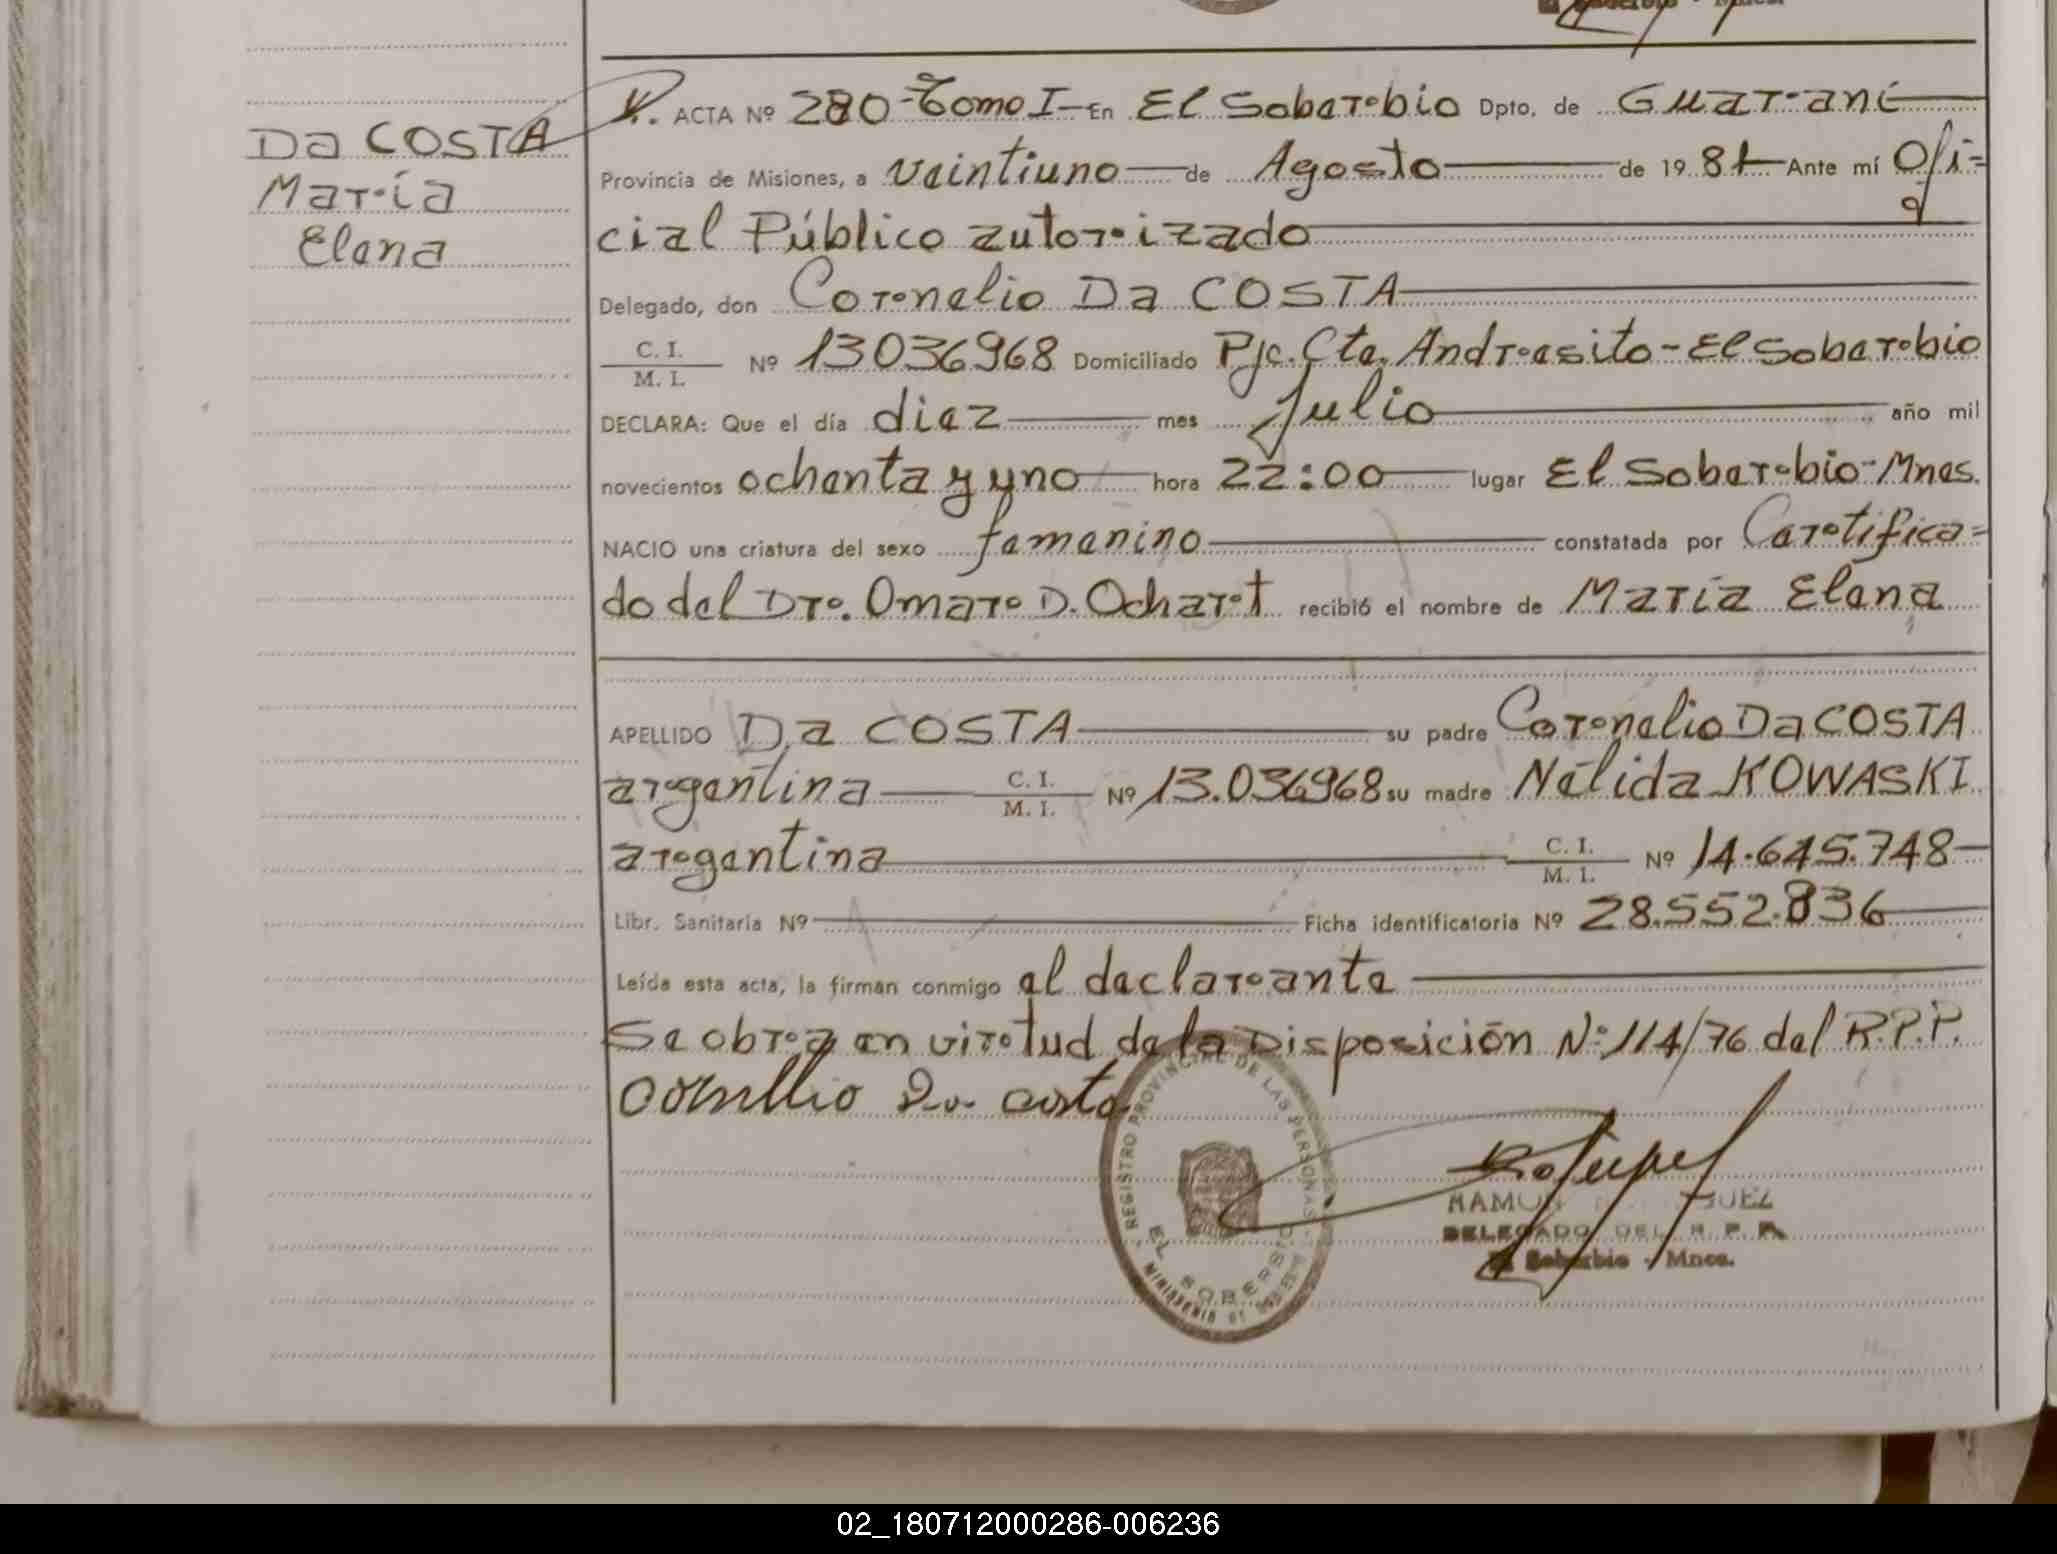 Da COSTA
María
Elena
ACTA Nº 280-Tomo I- En El Soberbio Dpto. de Guaraní
Provincia de Misiones, a veintiuno de Agosto de 1981 Ante mí Ofi=
cial Público autorizado
Delegado, don Cornelio Da COSTA
C. I.
M. I.
Nº 13036968 Domiciliado Pje. Cte. Andresito-El Soberbio
DECLARA: Que el día diez mes Julio año mil
novecientos ochenta y uno hora 22:00 lugar El Soberbio-Mnes.
NACIO una criatura del sexo femenino constatada por Certifica=
do del Dr. Omar D. Ochert recibió el nombre de María Elena
APELLIDO Da COSTA su padre Cornelio Da COSTA
argentina C. I. M. I. Nº 13.036968 su madre Nélida KOWASKI
argentina C. I. M. I. Nº 14.645.748-
Libr. Sanitaria Nº Ficha identificatoria Nº 28.552.836
Leída esta acta, la firman conmigo el declarante
Se obra en virtud de la Disposición Nº 114/76 del R.P.P.
Da costa
REGISTRO PROVINCIAL DE LAS PERSONAS
EL SOBERBIO
MINISTERIO DE
RAMON
DELEGADO DEL R. P. P.
El Soberbio - Mnes.
02_180712000286-006236